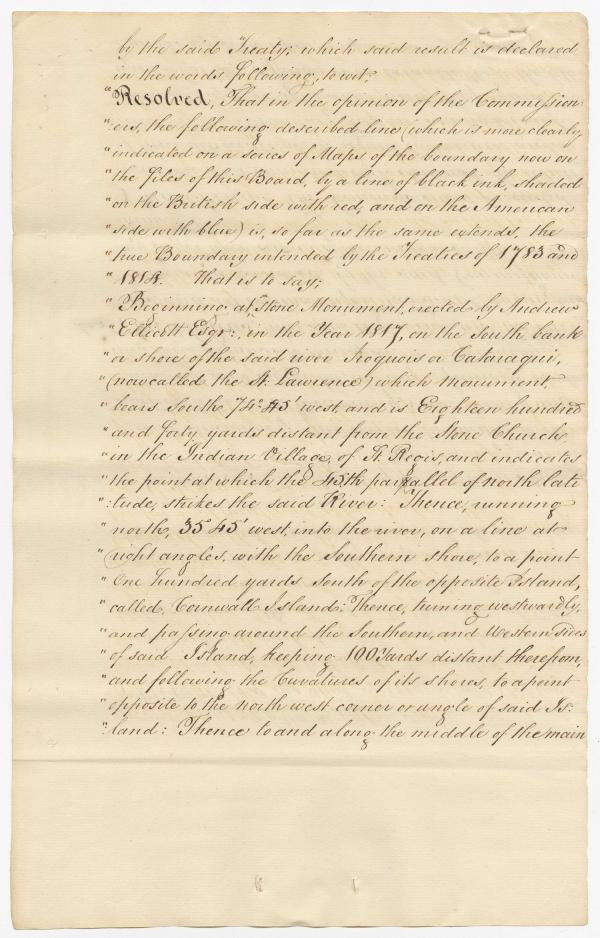 by the said Treaty; which said result is declared
in the words following, to wit:
"Resolved, That in the opinion of the Commission-
":ers, the following described line (which is more clearly
"indicated on a series of Maps of the boundary now on
"the files of this Board, by a line of black ink, shaded
"on the British side with red, and on the American
"side with blue) is, so far as the same extends, the
"true Boundary intended by the Treaties of 1783 and
"1814. That is to say;
"Beginning at Stone Monument, erected by Andrew
"Ellicott Esqr: in the Year 1817, on the South bank
"or shore of the said river Iroquois or Cataraqui,
"(now called the St. Lawrence) which monument
"bears South 74° 45' west, and is Eighteen hundred
"and forty yards distant from the Stone Church
"in the Indian Village, of St. Regis, and indicates
"the point at which the 45th parallel of north lati
":tude, strikes the said River: Thence, running
"north, 35° 45' west, into the river, on a line at
"(right angles, with the Southern shore, to a point
"One hundred yards South of the opposite Island,
"called, Cornwall Island: Thence, turning westwardly,
"and passing around the Southern, and Western sides
"of said Island, keeping 100 Yards distant therefrom,
"and following the Curvatures of its shores, to a point
"opposite to the north west corner or angle of said Is:
":land: Thence to and along the middle of the main